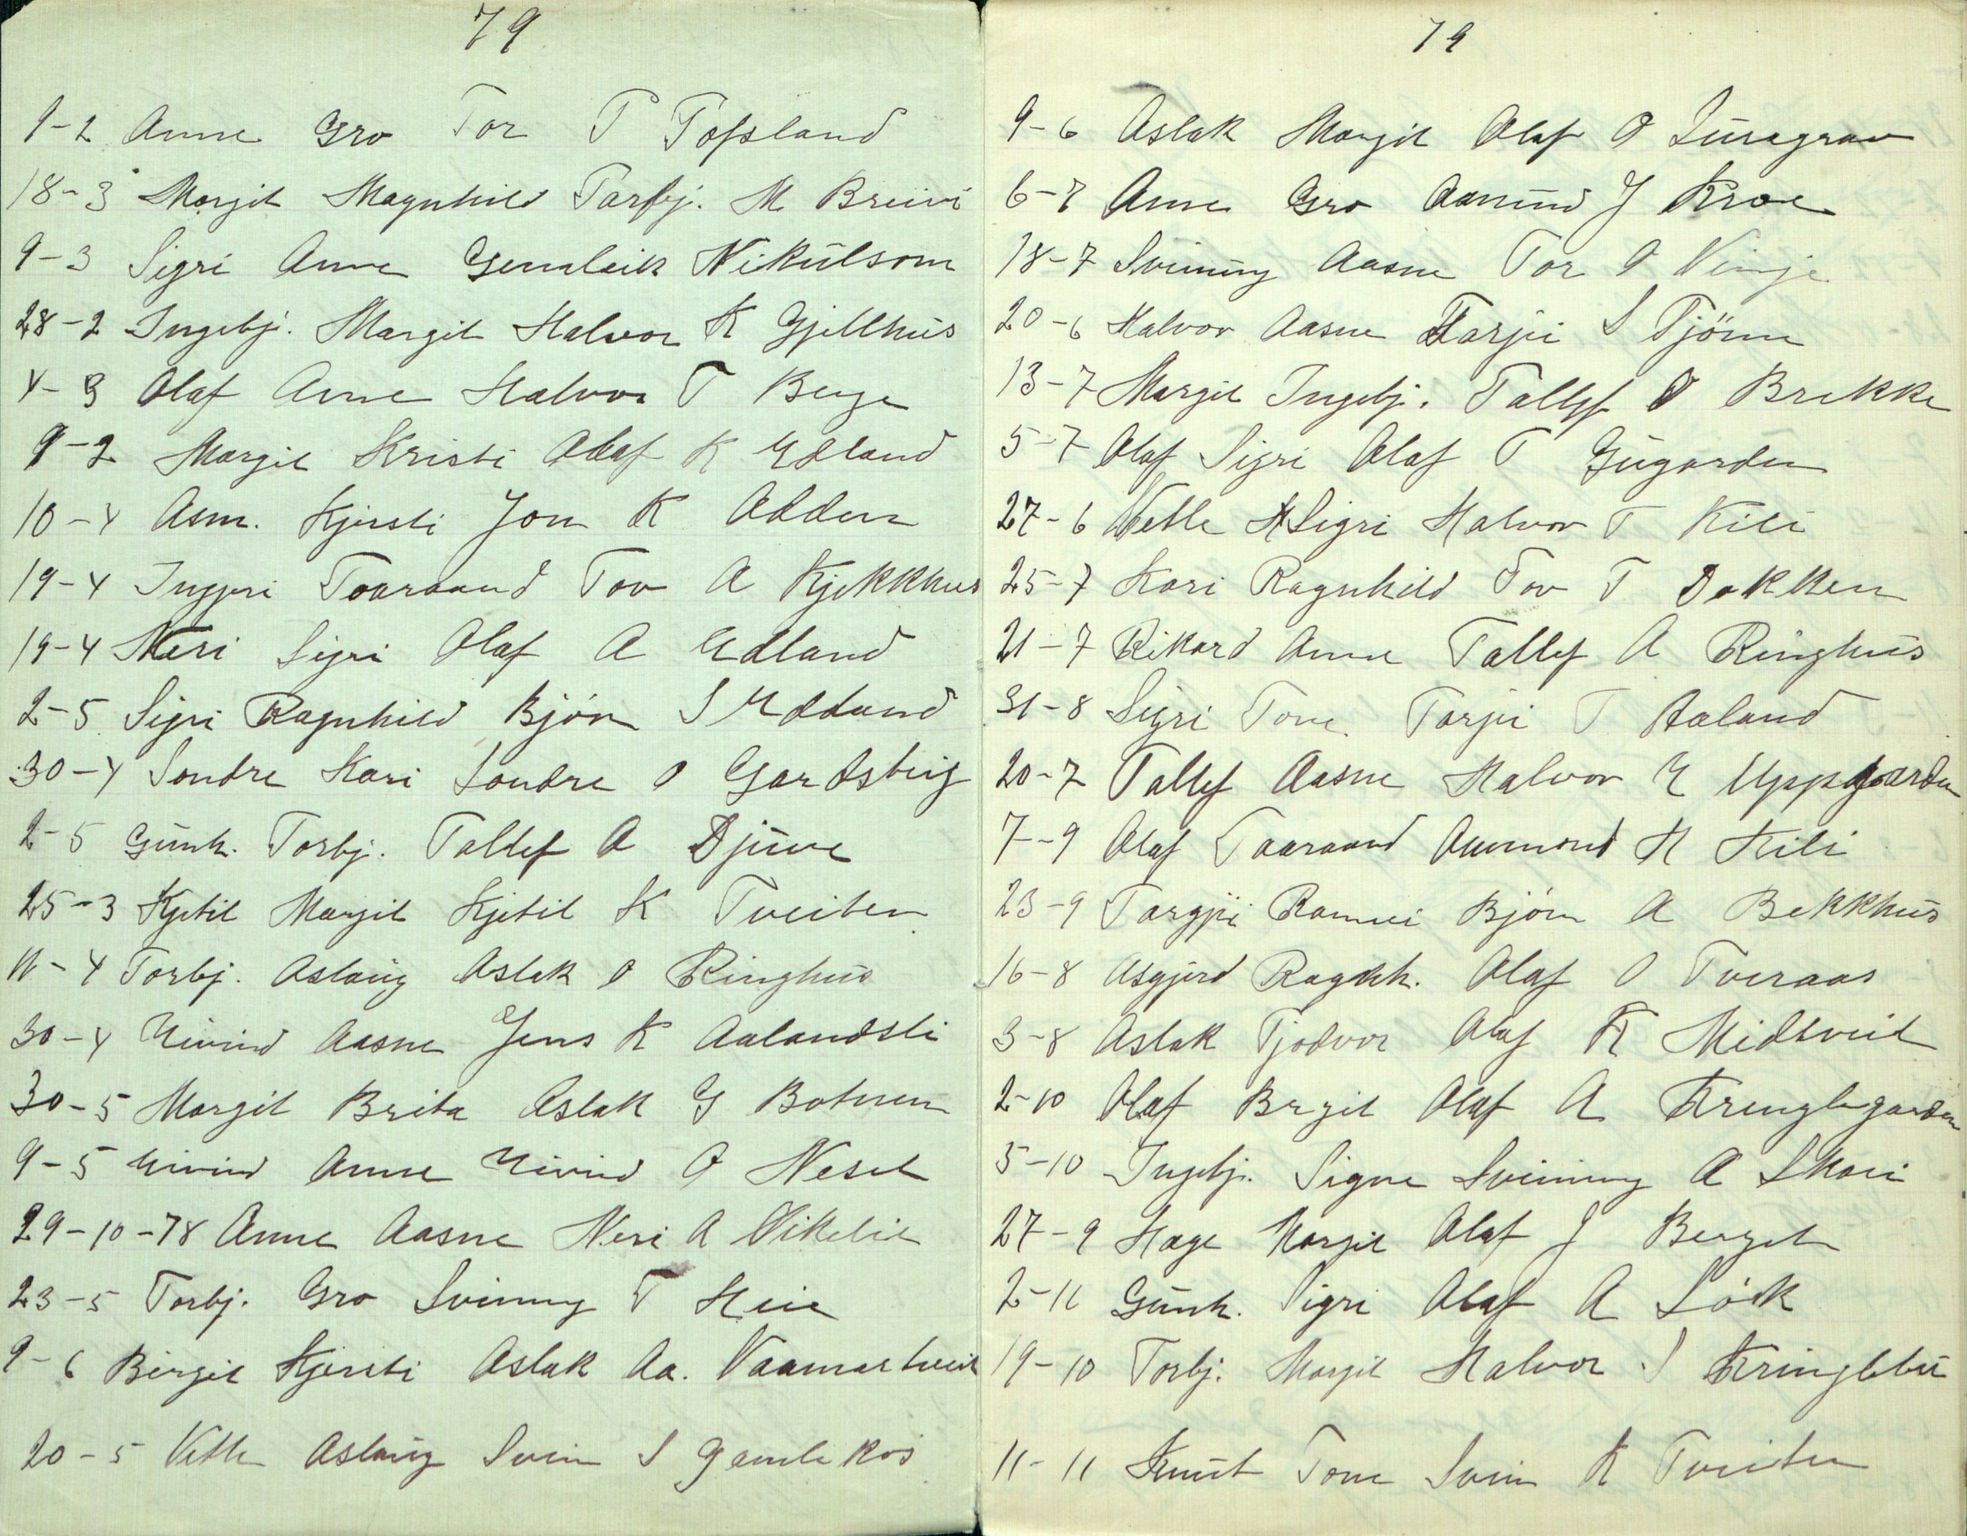 79
9-2 Anne Gro Tor T Tofsland
18-3 Margit Magnhild Tarbj. M Breivi
9-3 Sigri Anne Gunleik Nikulsom
28-2 Ingebj. Margit Halvor K Gjellhus
4-3 Olaf Anne Halvor T Berge
9-2 Margit Kristi Olaf K Edland
10-4 Asm. Kjersti Jon K Odden
19-4 Inggeri Taaraand Tov A Kjekkhus
19-4 Neri Sigri Olaf A Edland
2-5 Sigri Ragnhild Bjørn S
30-4 Sondre Kari Sondre O Gardsteig
2-5 Gunh. Torbj. Tallef A Djuve
25-3 Kjetil Margit Kjetil K Tveiten
11-4 Torbj. Aslaug Aslak O Ringhus
30-4 Eivind Aasne Jens K Aalandsli
30-5 Margit Brita Aslak G Botnen
9-5 Eivind Anne Eivind O Neset
29-10-78 Anne Aasne Neri A Vikelid
23-5 Torbj. Gro Sveinung T Heie
9-6 Birgit Kjersti Aslak Aa. Vaamartveit
20-5 Vetle Aslaug Svein S Gamlekos
79
9-6 Aslak Margit Olaf O Juvsgrav
6-7 Anne Gro Aamund J Kroe
18-7 Sveinung Aasne Tor O Vinje
20-6 Halvor Aasne Tarjei S Tjönn
13-7 Margit Ingebj. Tallef O Brekke
5-7 Olaf Sigri Olaf T Gugarden
27-6 Vetle Sigri Halvor T Kili
25-7 Kari Ragnhild Tov T Dokken
21-7 Rikard Anne Tallef A Ringhus
31-8 Sigri Tone Tarjei T Aaland
20-7 Tallef Aasne Halvor E Uppgarden
7-9 Olaf Taaraand Aamund H Kili
23-9 Targjei Ramvei Bjørn A Bekkhus
16-8 Asgjerd Ragnh. Olaf O Tveraas
3-8 Aslak Tjodvor Olaf K Midtveit
2-10 Olaf Birgit Olaf A Kringlegarden
5-10 Ingebj. Signe Sveinung A Skori
27-9 Hæge Margit Olaf J Berget
2-11 Gunh. Sigri Olaf A Løk
19-10 Torbj. Margit Halvor S Kringlebu
11-11 Knut Tone Svein K Tveiten